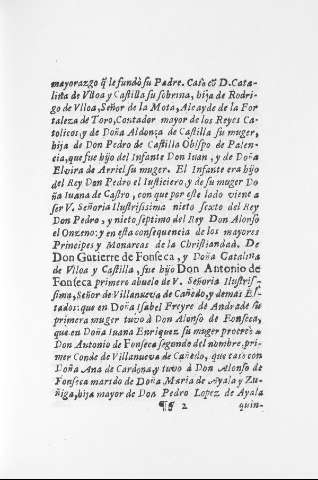 mayorazgo q̃ le fundò su Padre. Casò cõ D. Cata-
lina de Vlloa y Castilla su sobrina, hija de Rodri-
go de Vlloa, Señor de la Mota, Alcayde de la For
taleza de Toro, Contador mayor de los Reyes Ca
tolicos, y de Doña Aldonça de Castilla su muger,
hija de Don Pedro de Castilla Obispo de Palen-
cia, que fue hijo del Infante Don Iuan, y de Doña
Elvira de Arriel su muger. El Infante era hijo
del Rey Don Pedro el Iusticiero, y de su muger Do
ña Iuana de Castro, con que por este lado viene a
ser V. Señoria Ilustrissima nieto sexto del Rey
Don Pedro, y nieto septimo del Rey Don Alonso
el Onzeno: y en esta consequencia de los mayores
Principes y Monarcas de la Christiandad. De
Don Gutierre de Fonseca, y Doña Catalina
de Vlloa y Castilla, fue hijo Don Antonio de
Fonseca primero abuelo de V. Señoria Ilustris-
sima, Señor de Villanueva de Cañedo, y demas Es-
tados: que en Doña Isabel Freyre de Andrade su
primera muger tuvo à Don Alonso de Fonseca,
que en Doña Iuana Enriquez su muger procreò a
Don Antonio de Fonseca segundo del nombre, pri-
mer Conde de Villanueva de Cañedo, que casò con
Doña Ana de Cardona, y tuvo à Don Alonso de
Fonseca marido de Doña Maria de Ayala y Zu-
ñiga, hija mayor de Don Pedro Lopez de Ayala
¶¶ 2 quin-